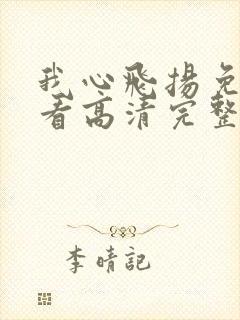 我心飛揚免
看高清完整
李晴記